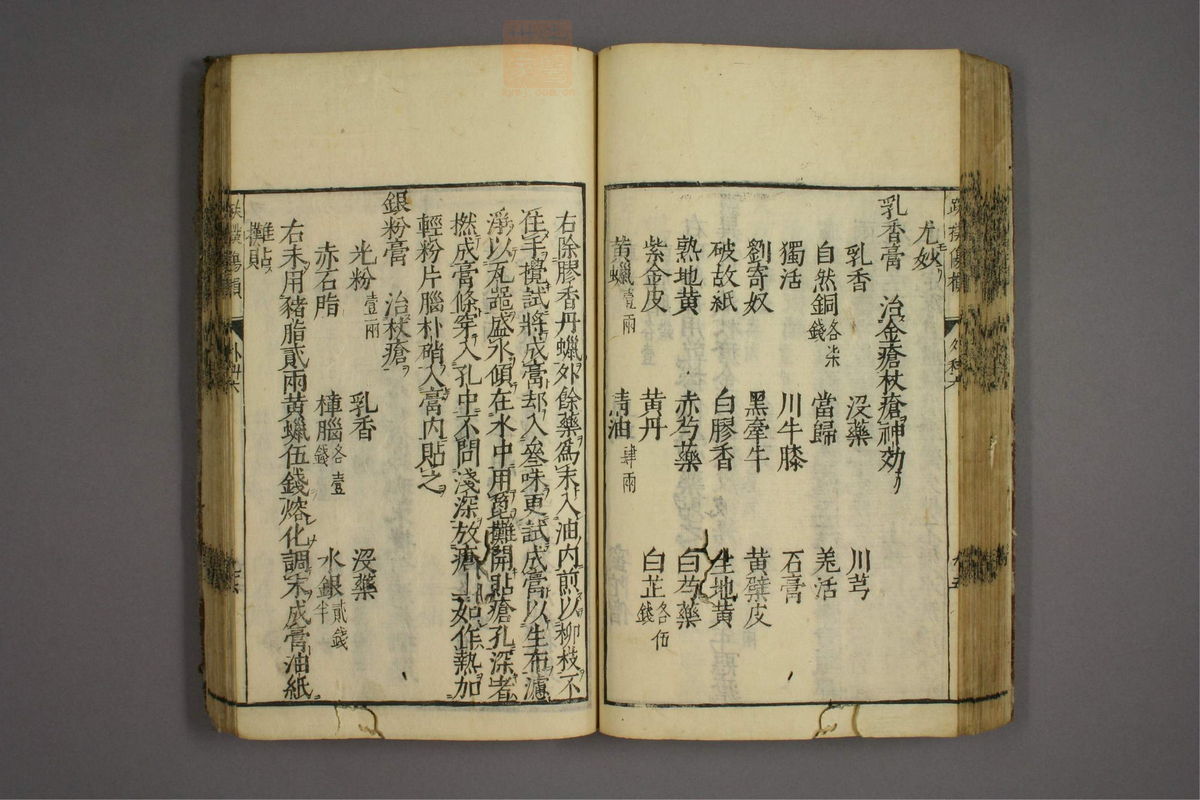 尤妙
乳香膏 治金瘡杖瘡神効
乳香 沒藥 川芎
自然銅各柒錢 當歸 羗活
獨活 川牛膝 石膏
劉寄奴 黑牽牛 黃蘗皮
破故紙 白膠香 生地黄
熟地黄 赤芍藥 白芍藥
紫金皮 黄丹 白芷各伍錢
黄蠟壹兩 清油肆兩
右除膠香丹蠟外餘藥爲末入油内煎以柳枝不
住手攪試將成膏却入叄味更試成膏以生布濾
淨以瓦噐盛水傾在水中用篦攤開貼瘡孔深者
撚成膏條穿入孔中不問淺深放瘡上如作熱加
輕粉片腦朴硝入膏内貼之
銀粉膏 治杖瘡
光粉壹兩 乳香 沒藥
赤石脂 樟腦各壹錢 水銀貳錢半
右末用豬脂貳兩黄蠟伍錢熔化調末成膏油紙
攤貼